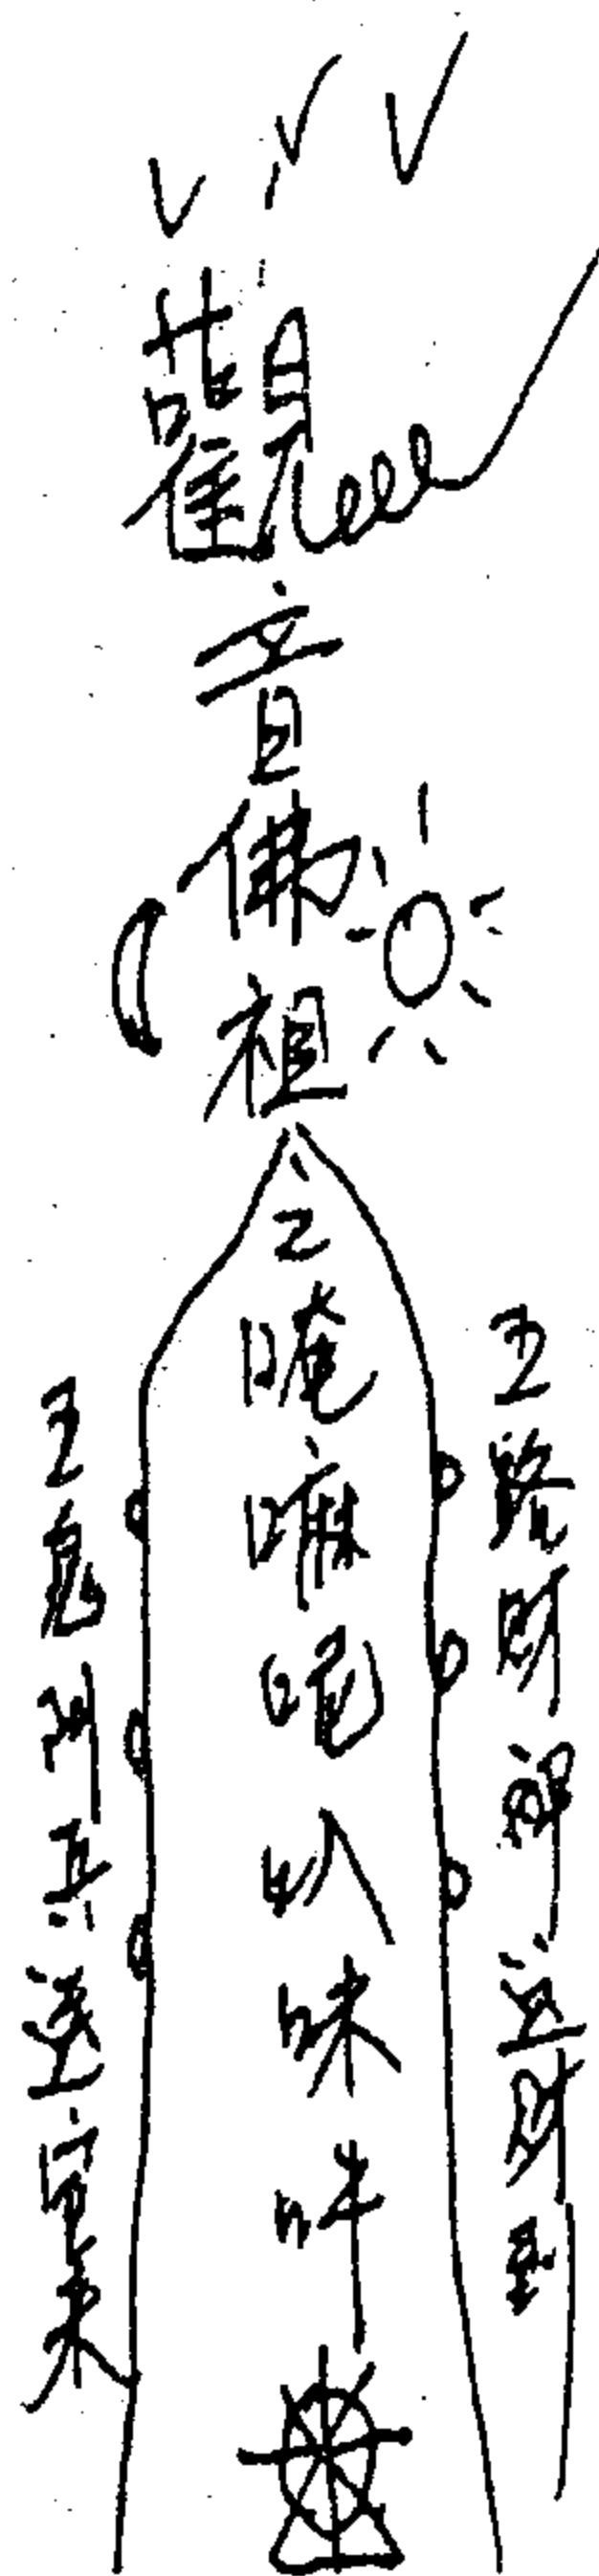 觀音佛祖
唵嘛呢叭咪吽
五路財神运財到
五鬼阴兵送宝来